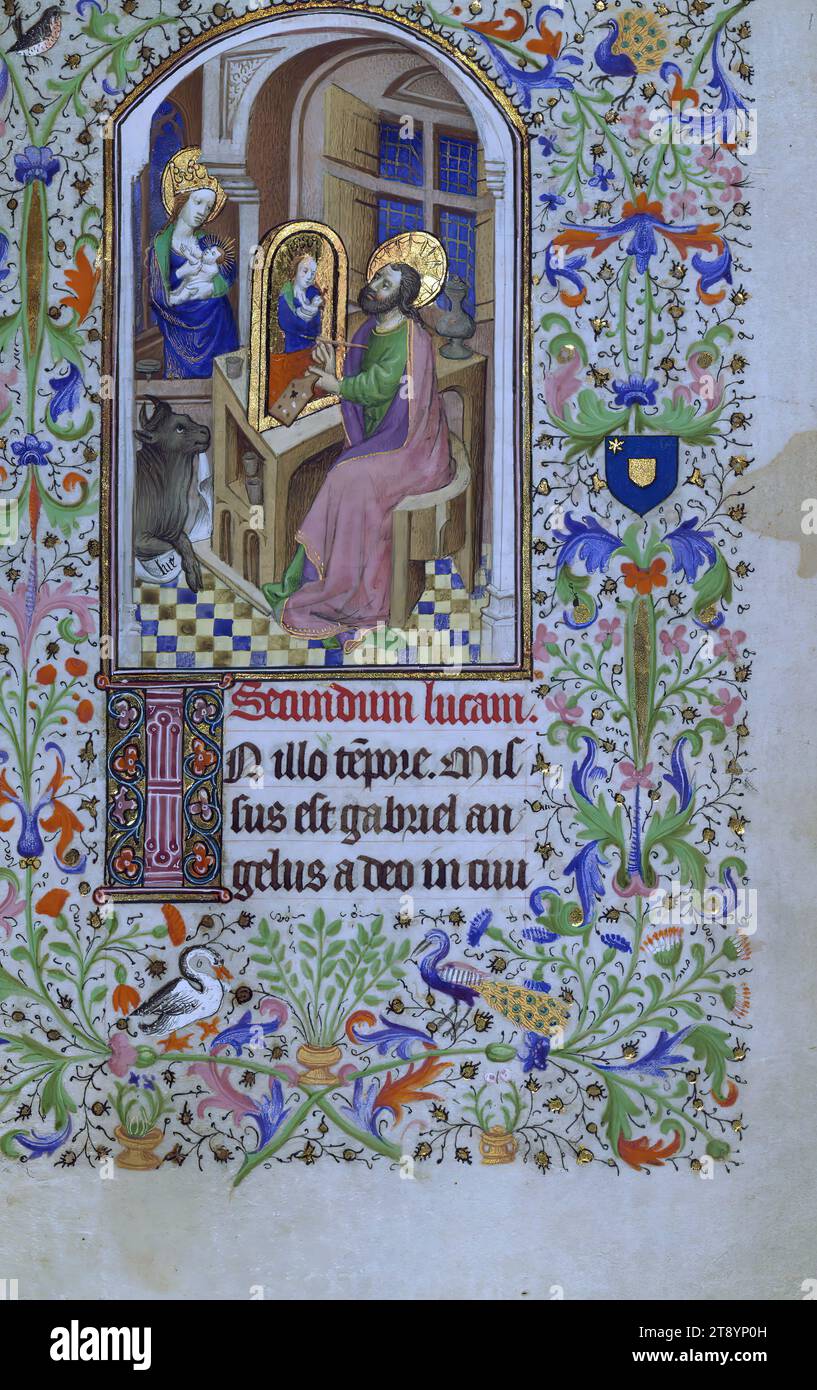 lue
Secundum lucam.
IN illo tēpore. Mis
sus est gabriel an
gelus a deo in ciui
alamy
Image ID: 2T8YP0H
www.alamy.com